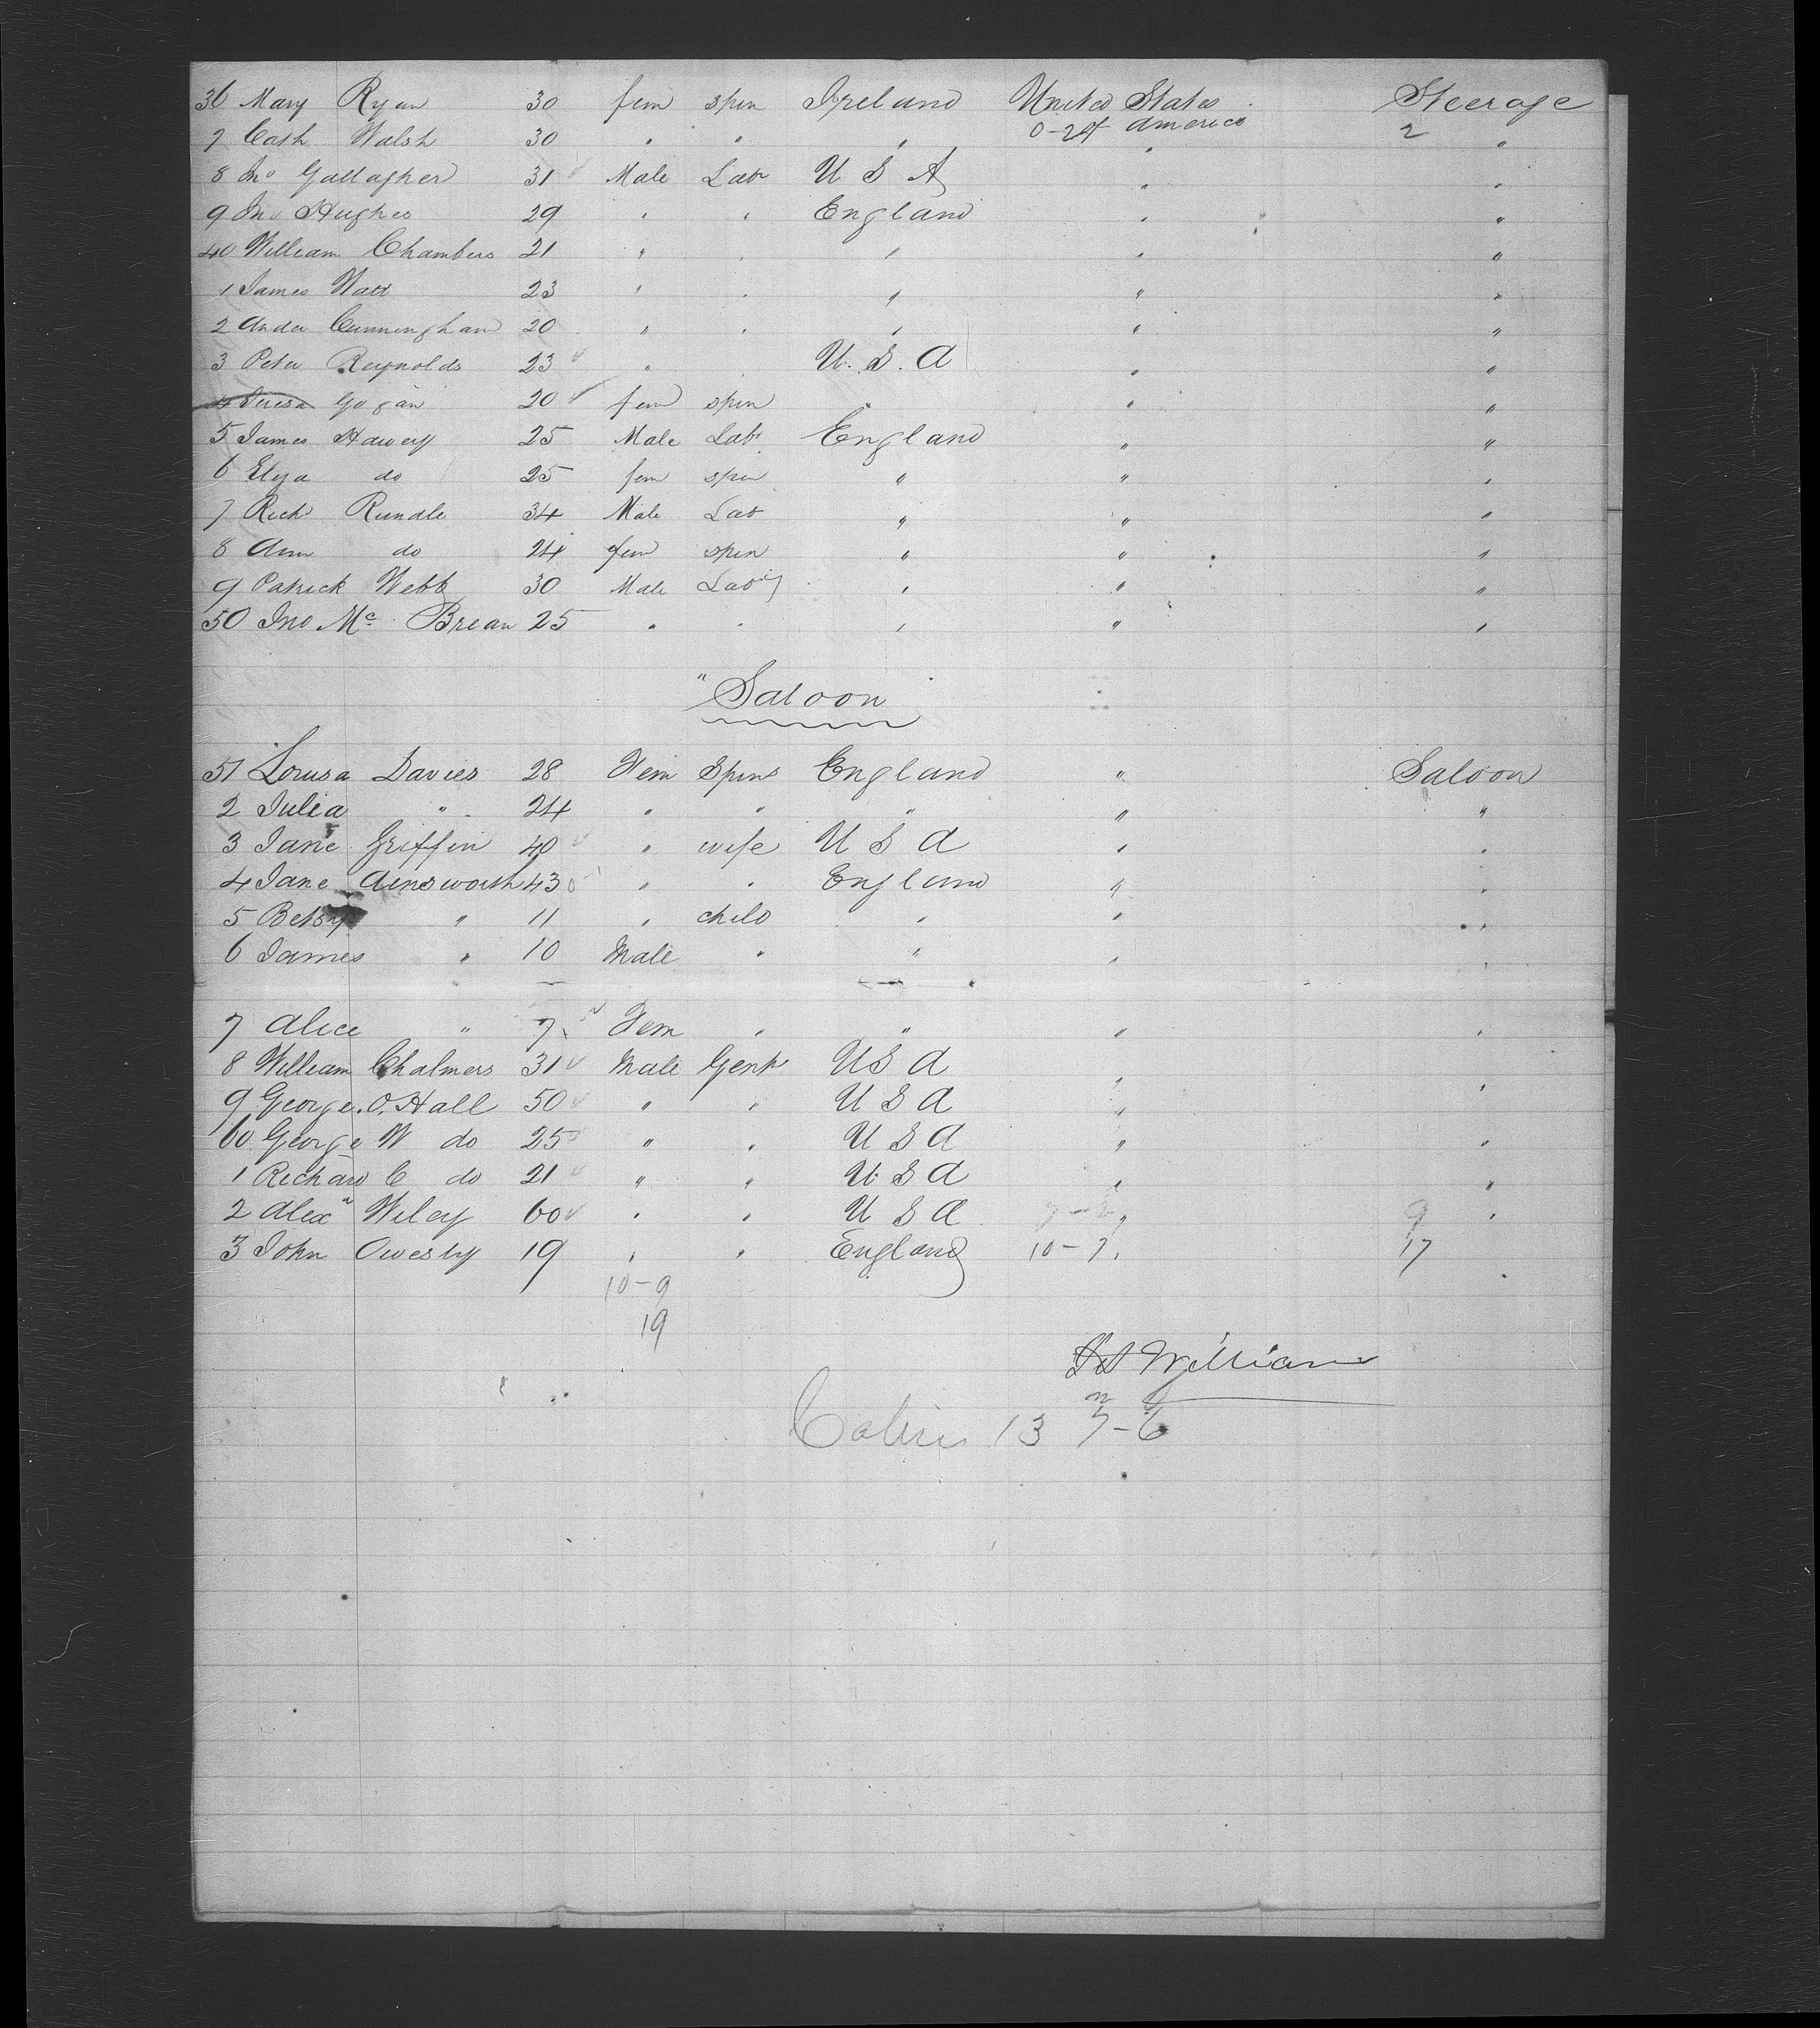 36 Mary Ryan 30 fem spin Ireland United States Steerage
7 Cath Walsh 30 " " " 0-24 America " 2 "
8 Jno Gallagher 31 Male Labr U S A " "
9 Jno Hughes 29 " " England " "
40 William Chambers 21 " " " " "
1 James Watt 23 " " " " "
2 Andw Cunningham 20 " " " " "
3 Peter Reynolds 23 " " U.S.A " "
4 Teresa Gogan 20 fem spin " " "
5 James Hawey 25 Male Labr England " "
6 Elya do 25 fem spin " " "
7 Richd Rundle 34 Male Lab " " "
8 Ann do 24 fem spin " " "
9 Patrick Webb 30 Male " " "
50 Jno Mc Brean 25 " " " " "
"Saloon"
51 Lousa Davies 28 Fem Spins England " Saloon
2 Julia " 24 " " " " "
3 Jane Griffin 40 " wife U S A " "
4 Jane Ainsworth 43 " " England " "
5 Betsy " 11 " child " " "
6 James " 10 Male " " " "
7 Alice " 7 Fem " " " "
8 William Chalmers 31 Male Gent U S A "
9 George. O. Hall 50 " " U S A " "
60 George W do 25 " " U S A " "
1 Richard C do 21 " " U S A " "
2 Alexr Wiley 60 " " U S A " 9 "
3 John Owesby 19 " " England 10-7 " 17
10-9
19
William
Cabin 13 7-6